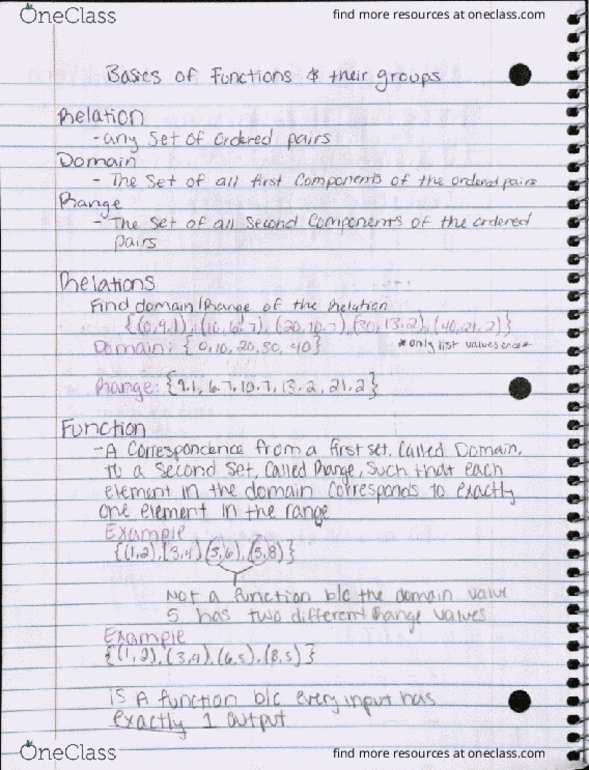 OneClass
find more resources at oneclass.com
Basics of Functions & their groups
Relation
- any Set of ordered pairs
Domain
- The Set of all first Components of the ordered pairs
Range
- The Set of all Second Components of the ordered
pairs
Relations
Find domain/Range of the Relation
{(0,9.1), (10,6.7), (20,10.7), (30,13.2), (40,21.2)}
Domain: { 0,10,20,30,40}
*only list values once*
Range: {9.1, 6.7, 10.7, 13.2, 21.2}
Function
- A Correspondence from a first set, Called Domain,
to a Second Set, Called Range, Such that each
element in the domain Corresponds to exactly
one element in the range
Example
{(1,2),(3,4)(5,6),(5,8)}
Not a function b/c the domain value
5 has two different Range values
Example
{(1,2),(3,4),(6,5),(8,5)}
is A function b/c every input has
exactly 1 output
OneClass
find more resources at oneclass.com